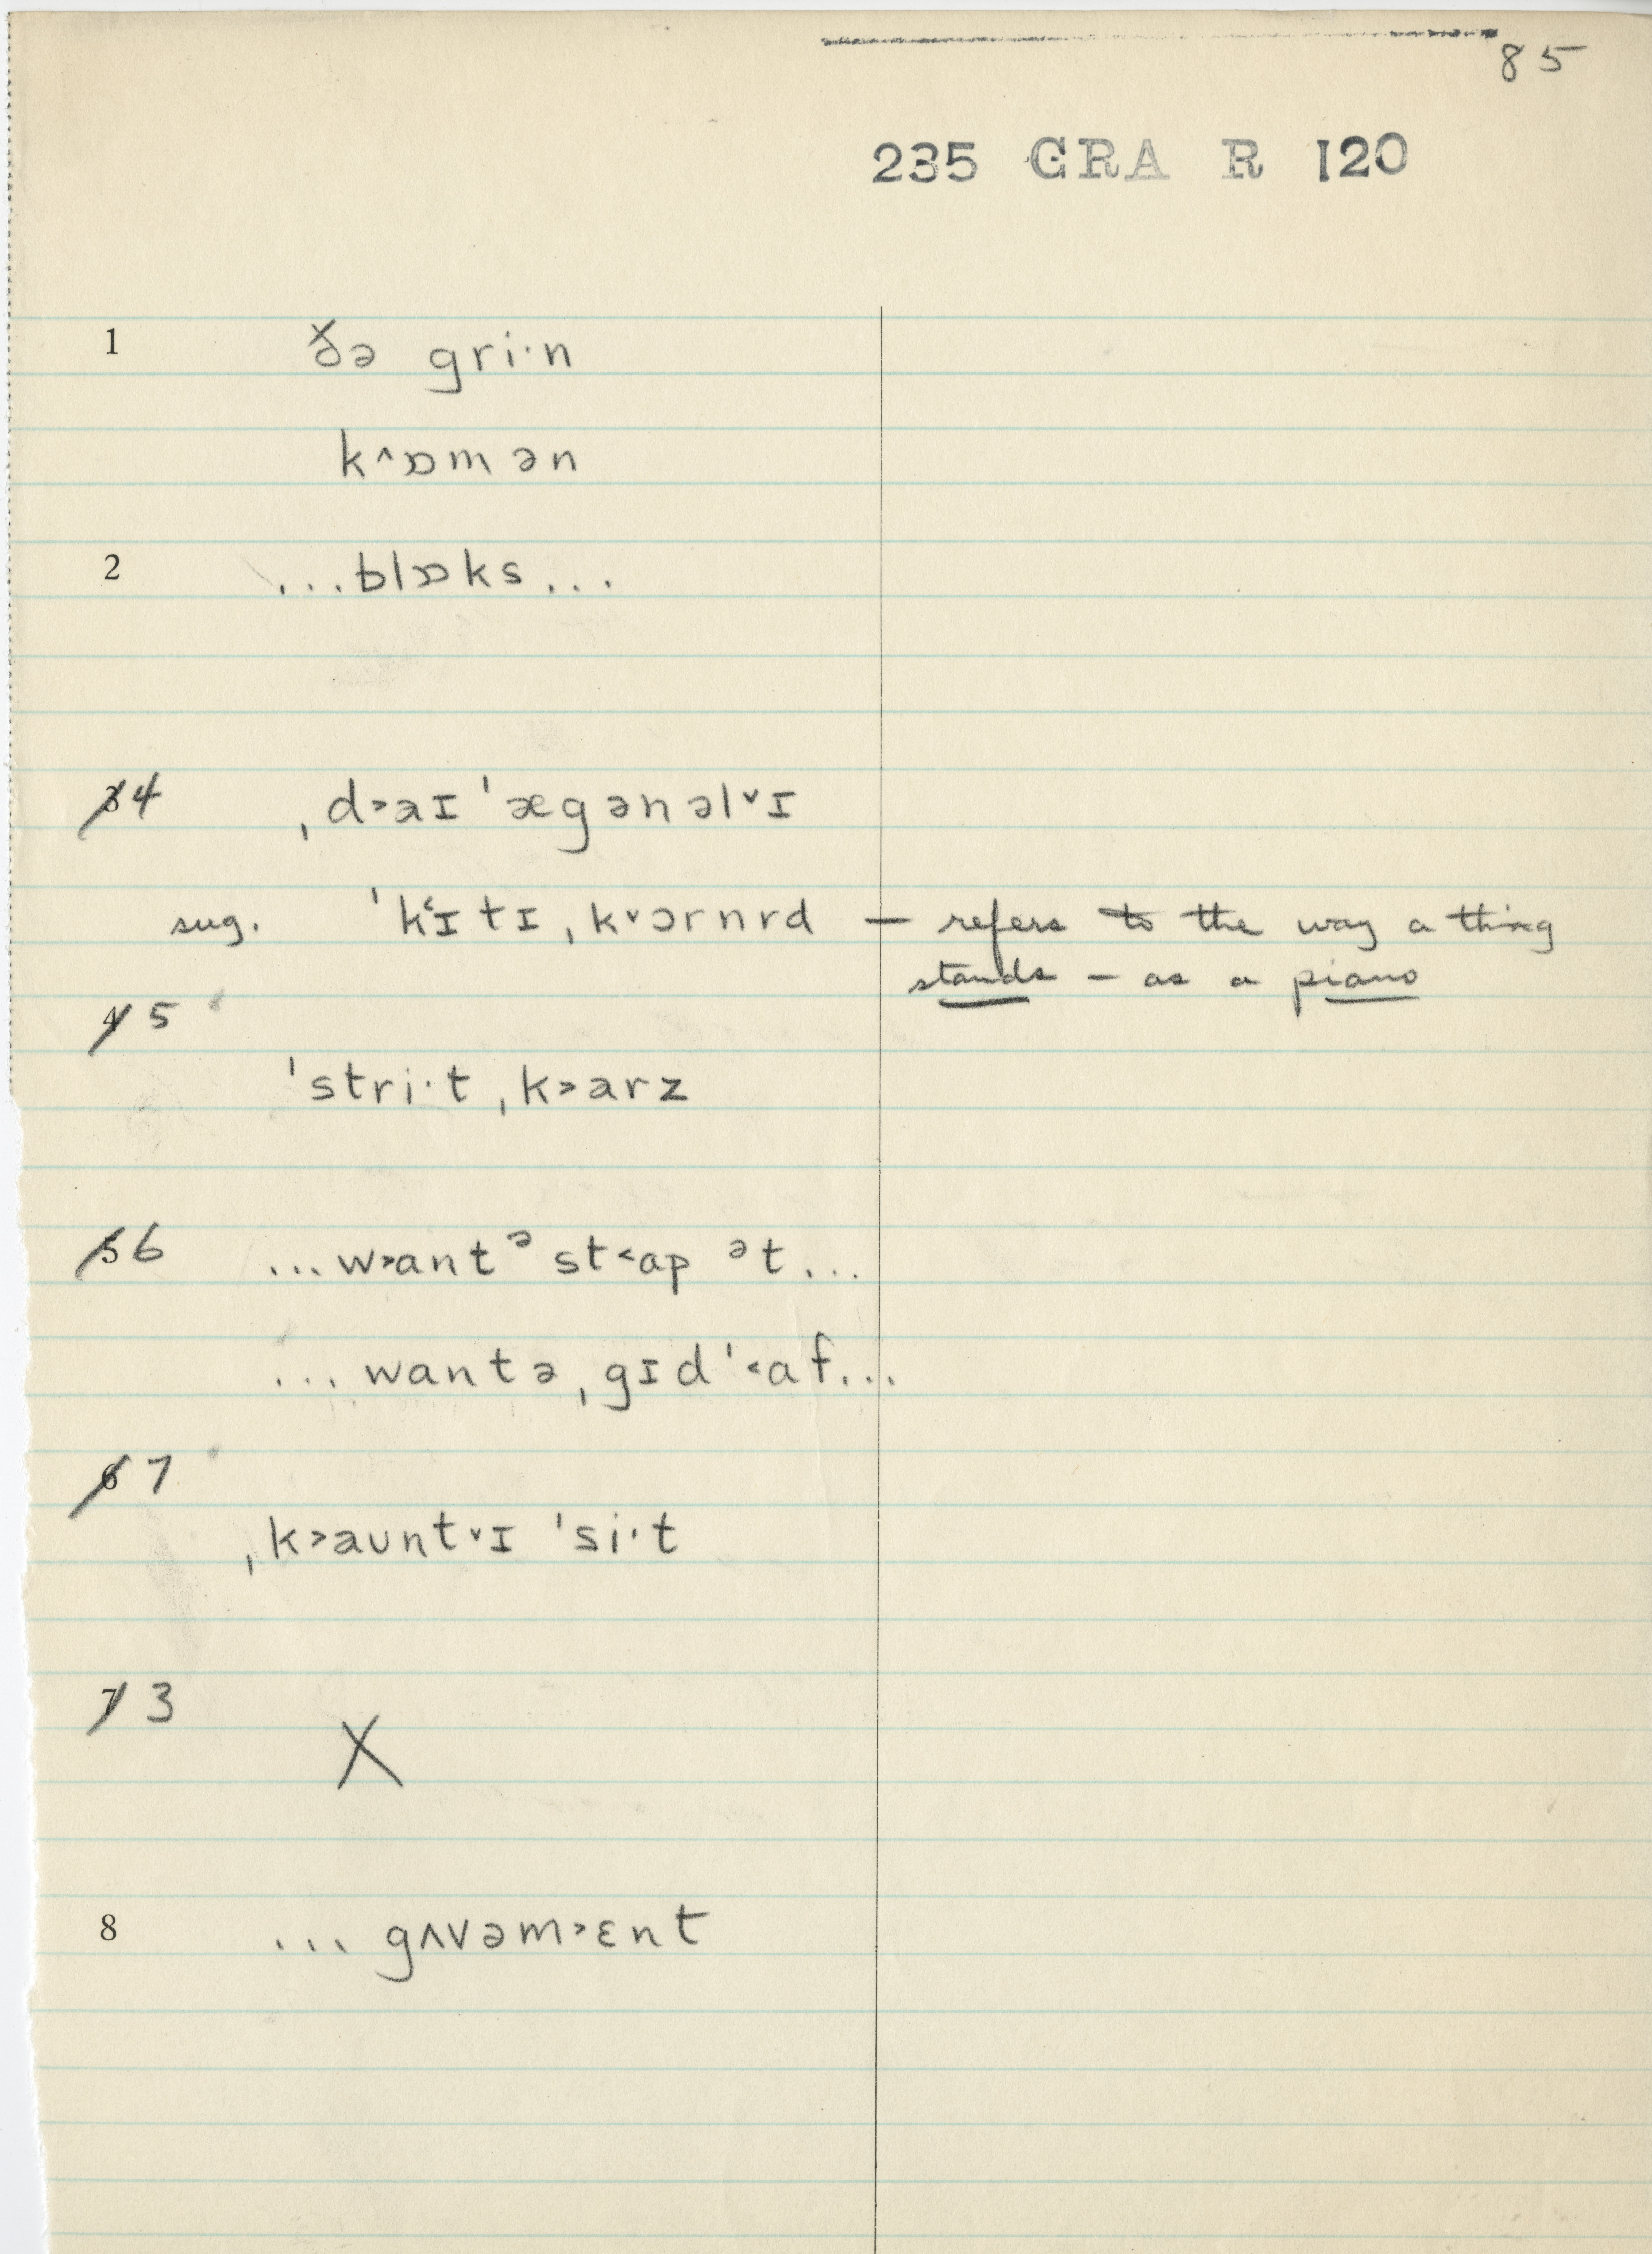 85
235 GRA R 120
1 ðə gri·n
k^ɒmən
2 ...blɒks...
3 4 ˌd˃aɪˈægənəl˅ɪ
sug. ˈk˂ɪtɪˌk˅ɔrnrd — refers to the way a thing
stands — as a piano
4 5
ˈstri·tˌk˃arz
5 6 ...w˃antᵊ st˂ap ᵊt...
...wantə ˌgɪdˈ˂af...
6 7
ˌk˃auntˇɪ ˈsi·t
7 3
X
8 ... gʌvəm˃ɛnt